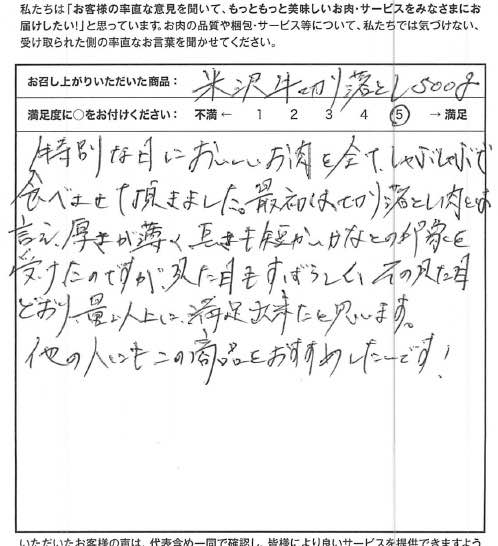 私たちは「お客様の率直な意見を聞いて、もっともっと美味しいお肉・サービスをみなさまにお
届けしたい!」と思っています。お肉の品質や梱包・サービス等について、私たちでは気づけない、
受け取られた側の率直なお言葉を聞かせてください。
お召し上がりいただいた商品: 米沢牛切り落とし500g
満足度に○をお付けください: 不満 ← 1 2 3 4 5 → 満足
特別な日においしいお肉を全て、しゃぶしゃぶで
食べませて頂きました。最初は、切り落とし肉とは
言え、厚さが薄く、長さも短かいかなとの印象を
受けたのですが、見た目もすばらしく、その見た目
どおり、量以上に、満足出来たと思います。
他の人にもこの商品をおすすめしたいです!
いただいたお客様の声は、代表含め一同で確認し、皆様により良いサービスを提供できますよう